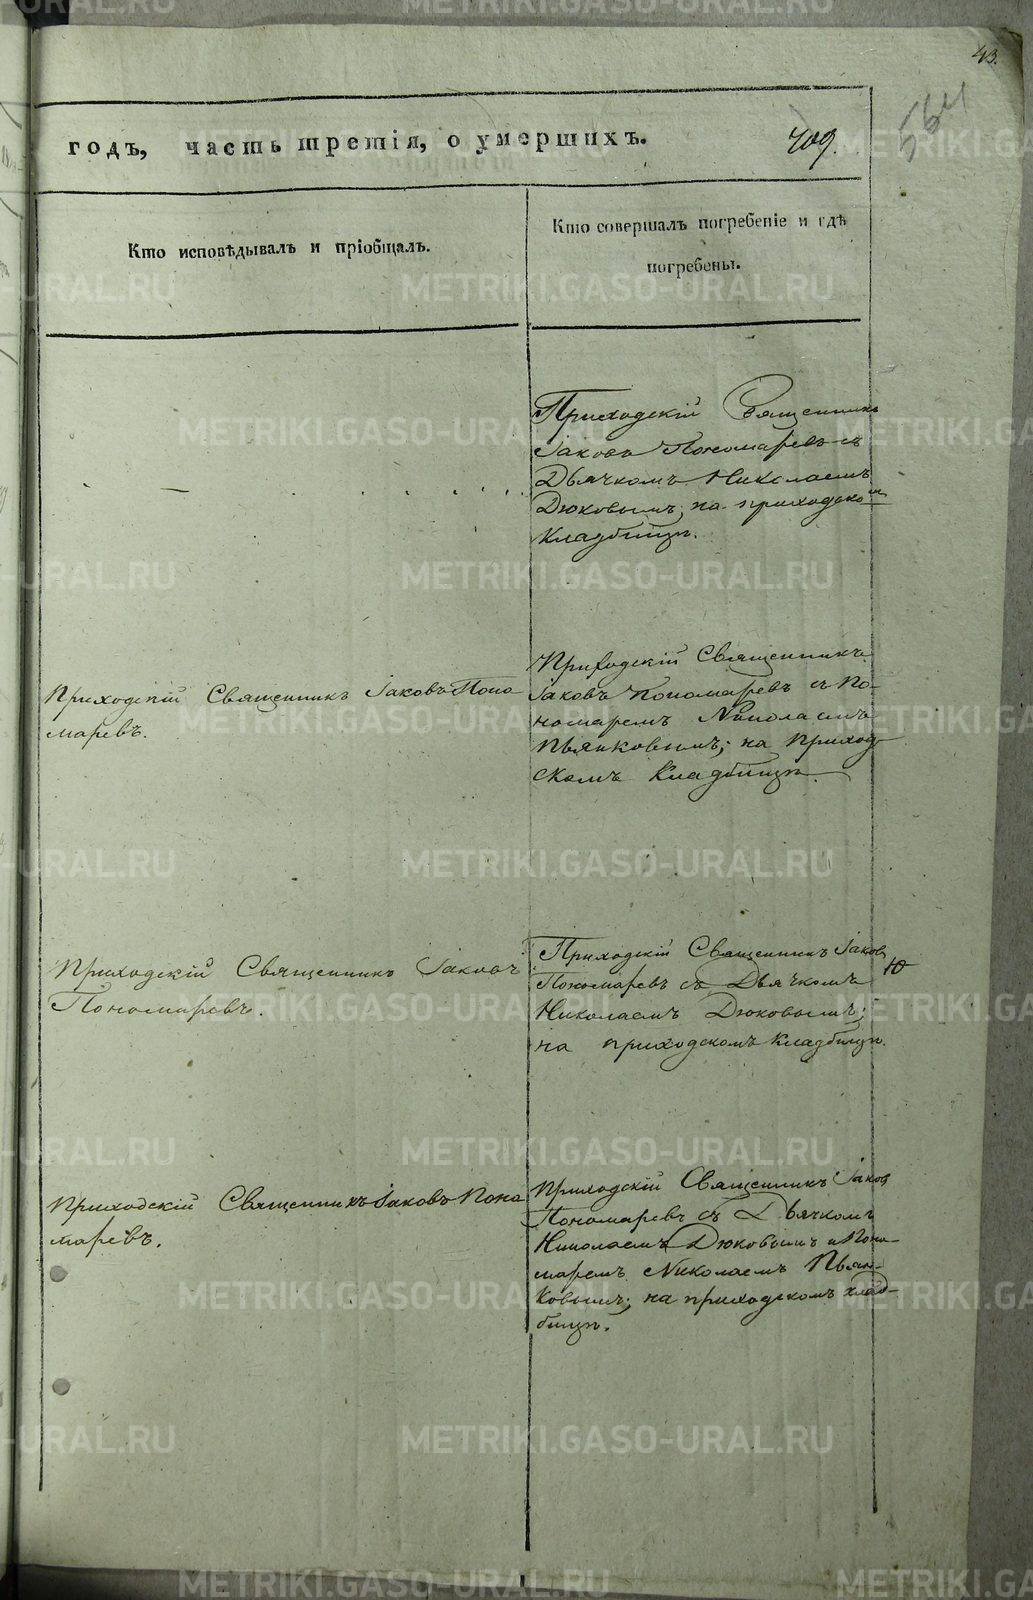 43.
564
годъ, часть третія, о умершихъ.
409.
Кто исповѣдывалъ и пріобщалъ.
Кто совершалъ погребеніе и гдѣ
погребены.
Приходскій Священникъ
Іаковъ Пономаревъ съ
Дьячкомъ Николаемъ
Дюковымъ; на приходском
Кладбищѣ.
Приходскій Священникъ Іаковъ Поно
маревъ.
Приходскій Священникъ
Іаковъ Пономаревъ съ По-
номаремъ Николаемъ
Пьянковымъ; на Приход-
скомъ Кладбищѣ.
Приходскій Священникъ Іаковъ
Пономаревъ.
Приходскій Священникъ Іаковъ
Пономаревъ съ Дьячкомъ
Николаемъ Дюковымъ;
на приходскомъ Кладбищѣ.
Приходскій Священникъ Іаковъ Поно
маревъ.
Приходскій Священникъ Іаковъ
Пономаревъ съ Дьячкомъ
Николаемъ Дюковымъ и Поно-
маремъ Николаемъ Пьян-
ковымъ; на приходскомъ клад-
бищѣ.
METRIKI.GASO-URAL.RU